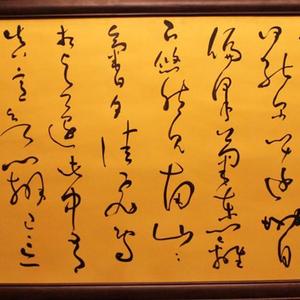 何能爾心遠地自
偏采菊東籬
下悠然見南山〻
氣日夕佳飛鳥
相與還此中有
真意欲辨已忘